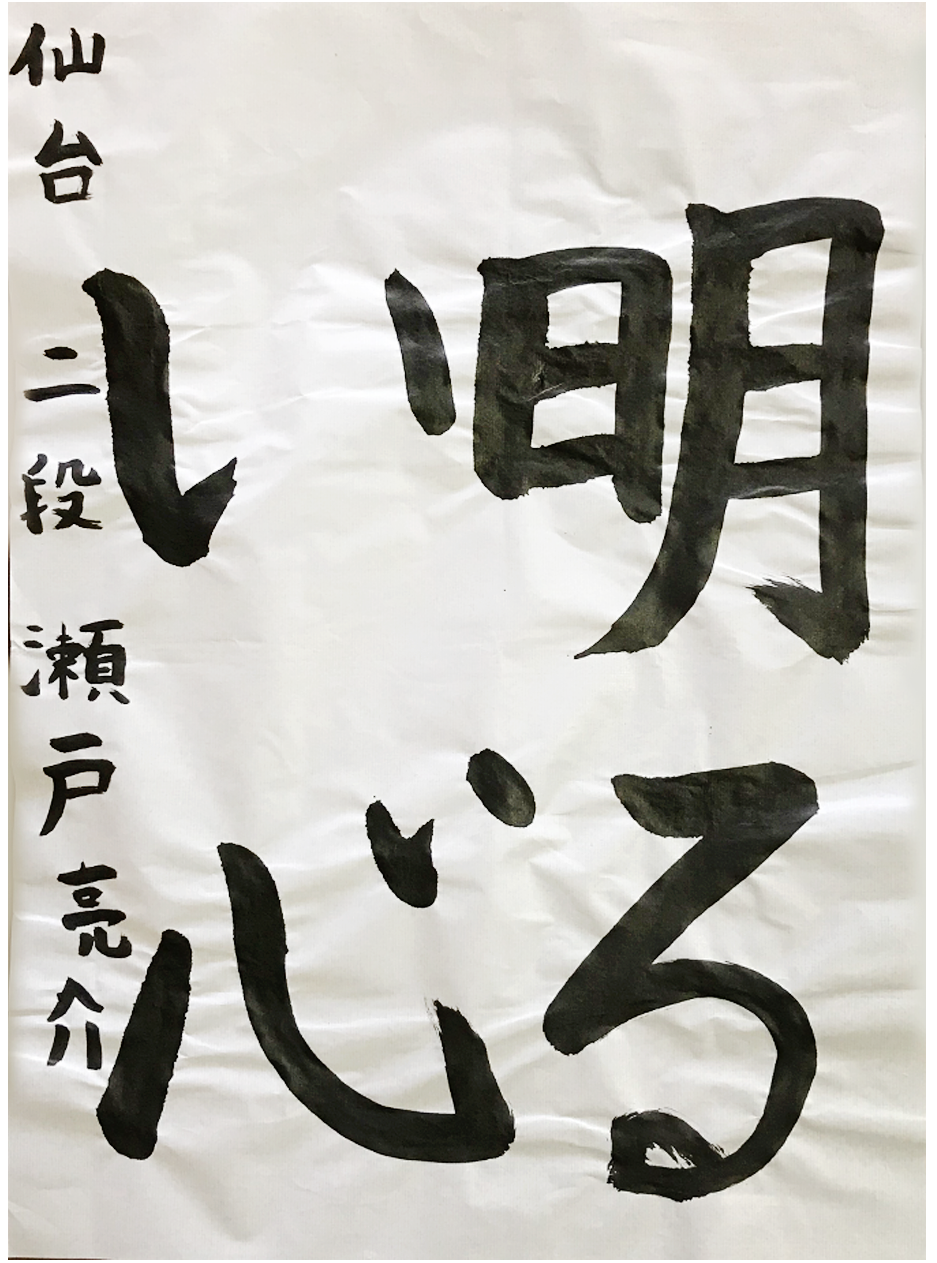 明る
い心
仙台 二段 瀬戸亮介